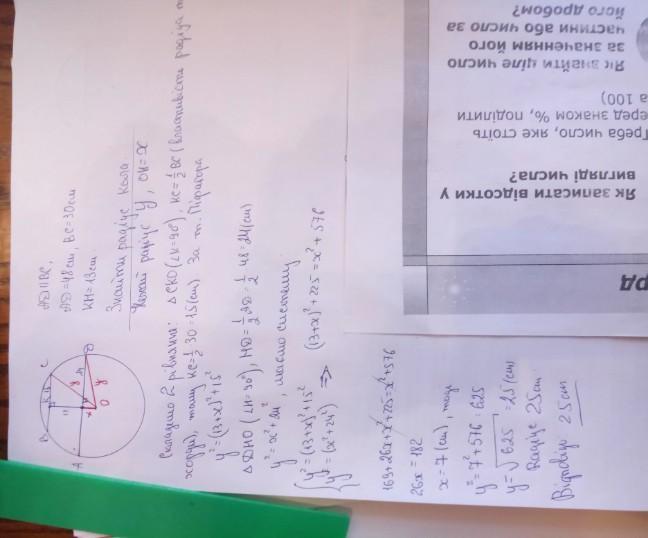 AD||BC,
AD=48см, BC=30см
KH=13см
Знайти радіус кола
Нехай радіус y, OH=x
Складемо 2 рівняння: △CKO (∠K=90°), KC=½BC (властивість радіуса
хорди), тому KC=½·30=15(см) За т. Піфагора
y²=(13+x)²+15²
△DHO (∠H=90°), HD=½AD=½·48=24(см)
y²=x²+24², маємо систему
{y²=(13+x)²+15²
{y²=(x²+24²) ⇒ (13+x)²+225=x²+576
169+26x+x²+225=x²+576
26x=182
x=7(см), тоді
y²=7²+576=625
y=√625=25(см)
Радіус 25см
Відповідь: 25см
B
K
C
A
H
D
O
x
y
y
РД
Як записати відсотки у
вигляді числа?
Треба число, яке стоїть
перед знаком %, поділити
на 100)
Як знайти ціле число
за значенням його
частини або число за
його дробом?